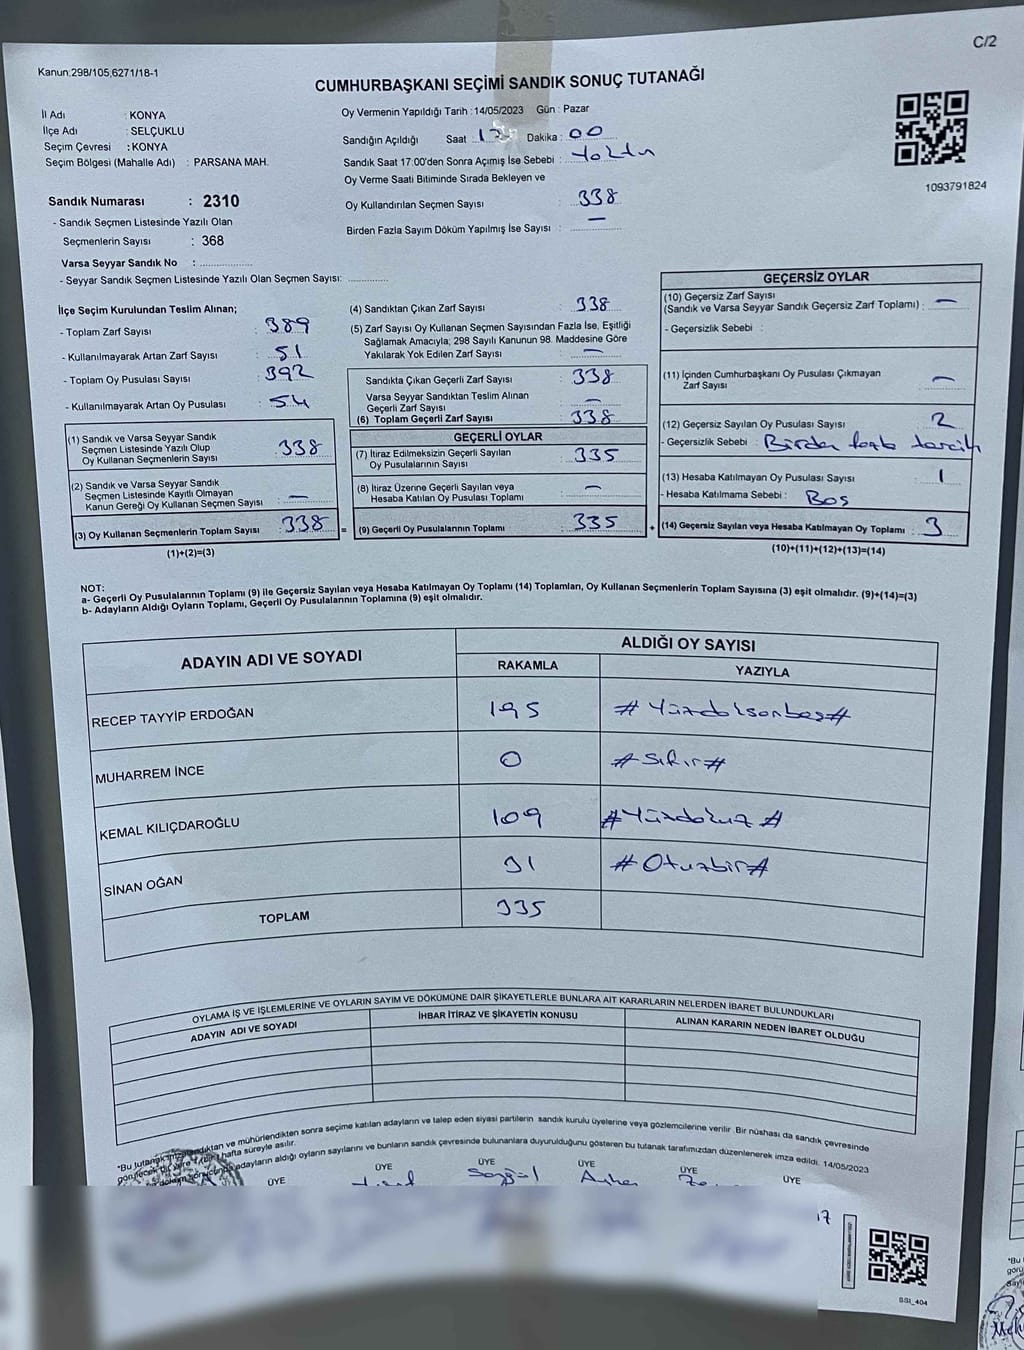 C/2
Kanun:298/105,6271/18-1
CUMHURBAŞKANI SEÇİMİ SANDIK SONUÇ TUTANAĞI
1093791824
İl Adı : KONYA
İlçe Adı : SELÇUKLU
Seçim Çevresi : KONYA
Seçim Bölgesi (Mahalle Adı) : PARSANA MAH.
Sandık Numarası : 2310
- Sandık Seçmen Listesinde Yazılı Olan
Seçmenlerin Sayısı : 368
Varsa Seyyar Sandık No :
- Seyyar Sandık Seçmen Listesinde Yazılı Olan Seçmen Sayısı:
Oy Vermenin Yapıldığı Tarih : 14/05/2023 Gün : Pazar
Sandığın Açıldığı Saat 17 Dakika : 00
Sandık Saat 17:00'den Sonra Açımış İse Sebebi : Yoktur
Oy Verme Saati Bitiminde Sırada Bekleyen ve
Oy Kullandırılan Seçmen Sayısı : 338
Birden Fazla Sayım Döküm Yapılmış İse Sayısı : —
İlçe Seçim Kurulundan Teslim Alınan;
- Toplam Zarf Sayısı : 389
- Kullanılmayarak Artan Zarf Sayısı : 51
- Toplam Oy Pusulası Sayısı : 392
- Kullanılmayarak Artan Oy Pusulası : 54
(1) Sandık ve Varsa Seyyar Sandık
Seçmen Listesinde Yazılı Olup
Oy Kullanan Seçmenlerin Sayısı : 338
(2) Sandık ve Varsa Seyyar Sandık
Seçmen Listesinde Kayıtlı Olmayan
Kanun Gereği Oy Kullanan Seçmen Sayısı : —
(3) Oy Kullanan Seçmenlerin Toplam Sayısı : 338
(1)+(2)=(3)
(4) Sandıktan Çıkan Zarf Sayısı : 338
(5) Zarf Sayısı Oy Kullanan Seçmen Sayısından Fazla İse, Eşitliği
Sağlamak Amacıyla; 298 Sayılı Kanunun 98. Maddesine Göre
Yakılarak Yok Edilen Zarf Sayısı : —
Sandıkta Çıkan Geçerli Zarf Sayısı : 338
Varsa Seyyar Sandıktan Teslim Alınan
Geçerli Zarf Sayısı : —
(6) Toplam Geçerli Zarf Sayısı : 338
GEÇERLİ OYLAR
(7) İtiraz Edilmeksizin Geçerli Sayılan
Oy Pusulalarının Sayısı : 335
(8) İtiraz Üzerine Geçerli Sayılan veya
Hesaba Katılan Oy Pusulası Toplamı : —
= (9) Geçerli Oy Pusulalarının Toplamı : 335
GEÇERSİZ OYLAR
(10) Geçersiz Zarf Sayısı
(Sandık ve Varsa Seyyar Sandık Geçersiz Zarf Toplamı) : —
- Geçersizlik Sebebi :
(11) İçinden Cumhurbaşkanı Oy Pusulası Çıkmayan
Zarf Sayısı : —
(12) Geçersiz Sayılan Oy Pusulası Sayısı : 2
- Geçersizlik Sebebi : Birden fazla tercih
(13) Hesaba Katılmayan Oy Pusulası Sayısı : 1
- Hesaba Katılmama Sebebi : Boş
+ (14) Geçersiz Sayılan veya Hesaba Katılmayan Oy Toplamı : 3
(10)+(11)+(12)+(13)=(14)
NOT:
a- Geçerli Oy Pusulalarının Toplamı (9) ile Geçersiz Sayılan veya Hesaba Katılmayan Oy Toplamı (14) Toplamları, Oy Kullanan Seçmenlerin Toplam Sayısına (3) eşit olmalıdır. (9)+(14)=(3)
b- Adayların Aldığı Oyların Toplamı, Geçerli Oy Pusulalarının Toplamına (9) eşit olmalıdır.
ADAYIN ADI VE SOYADI
ALDIĞI OY SAYISI
RAKAMLA YAZIYLA
RECEP TAYYİP ERDOĞAN 195 # Yüzdoksanbeş #
MUHARREM İNCE 0 # Sıfır #
KEMAL KILIÇDAROĞLU 109 # Yüzdokuz #
SİNAN OĞAN 31 # Otuzbir #
TOPLAM 335
OYLAMA İŞ VE İŞLEMLERİNE VE OYLARIN SAYIM VE DÖKÜMÜNE DAİR ŞİKAYETLERLE BUNLARA AİT KARARLARIN NELERDEN İBARET BULUNDUKLARI
ADAYIN ADI VE SOYADI İHBAR İTİRAZ VE ŞİKAYETİN KONUSU ALINAN KARARIN NEDEN İBARET OLDUĞU
*Bu tutanak ve mühürlendikten sonra seçime katılan adayların ve talep eden siyasi partilerin sandık kurulu üyelerine veya gözlemcilerine verilir. Bir nüshası da sandık çevresinde
hafta süreyle asılır.
adayların aldığı oyların sayılarını ve bunların sandık çevresinde bulunanlara duyurulduğunu gösteren bu tutanak tarafımızdan düzenlenerek imza edildi. 14/05/2023
ÜYE ÜYE ÜYE ÜYE ÜYE ÜYE
Ayhan
17
SSI_404
*Bu